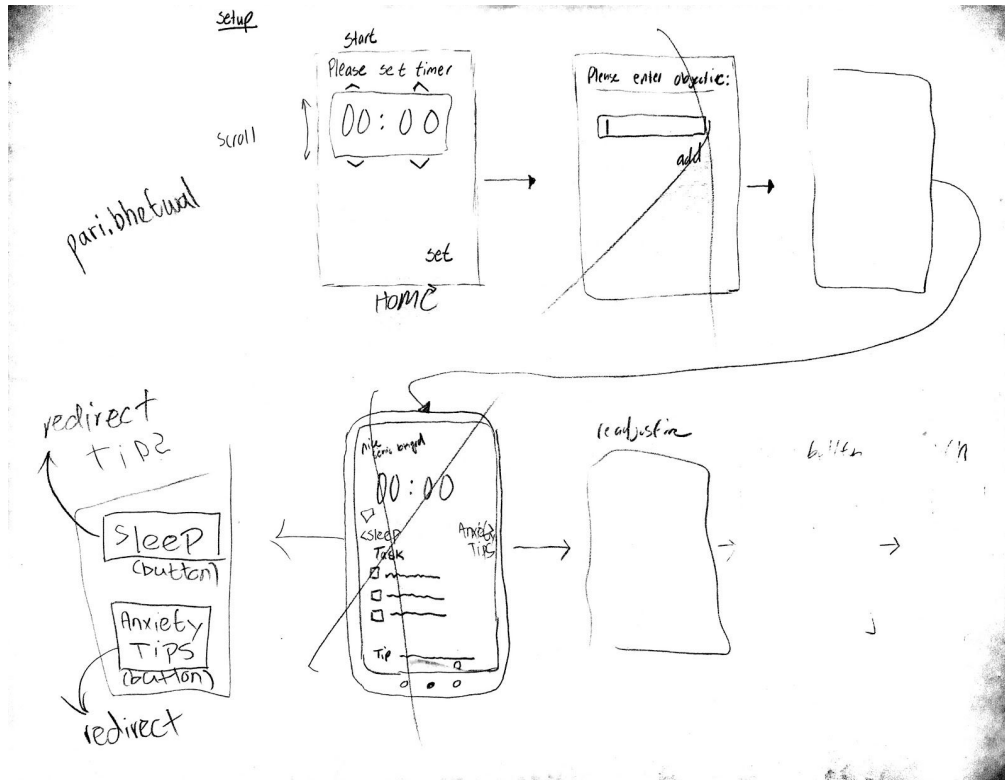 setup
start
Please set timer
00:00
scroll
set
HOME
pari.bhetwal
Please enter objective:
add
redirect
TIPS
Sleep
(button)
Anxiety
TIPS
(button)
redirect
00:00
<sleep
Anxiety
Tips
Task
Tip